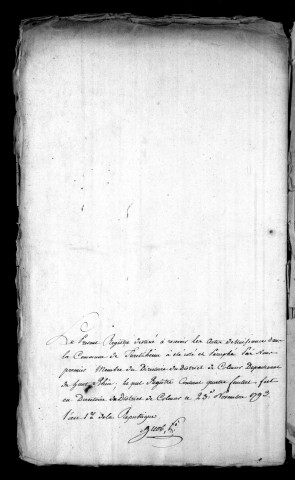 Le Present Registre destiné à recevoir les Actes de Naissance dans
la Commune de a été coté et Paraphé Par Nous
premier Membre du Directoire du District de Colmar Departement
du haut Rhin, le quel Registre Contient quatre feuillets, fait
au Directoire du District de Colmar ce 23. Novembre 1793.
l'an 1er de la Republique